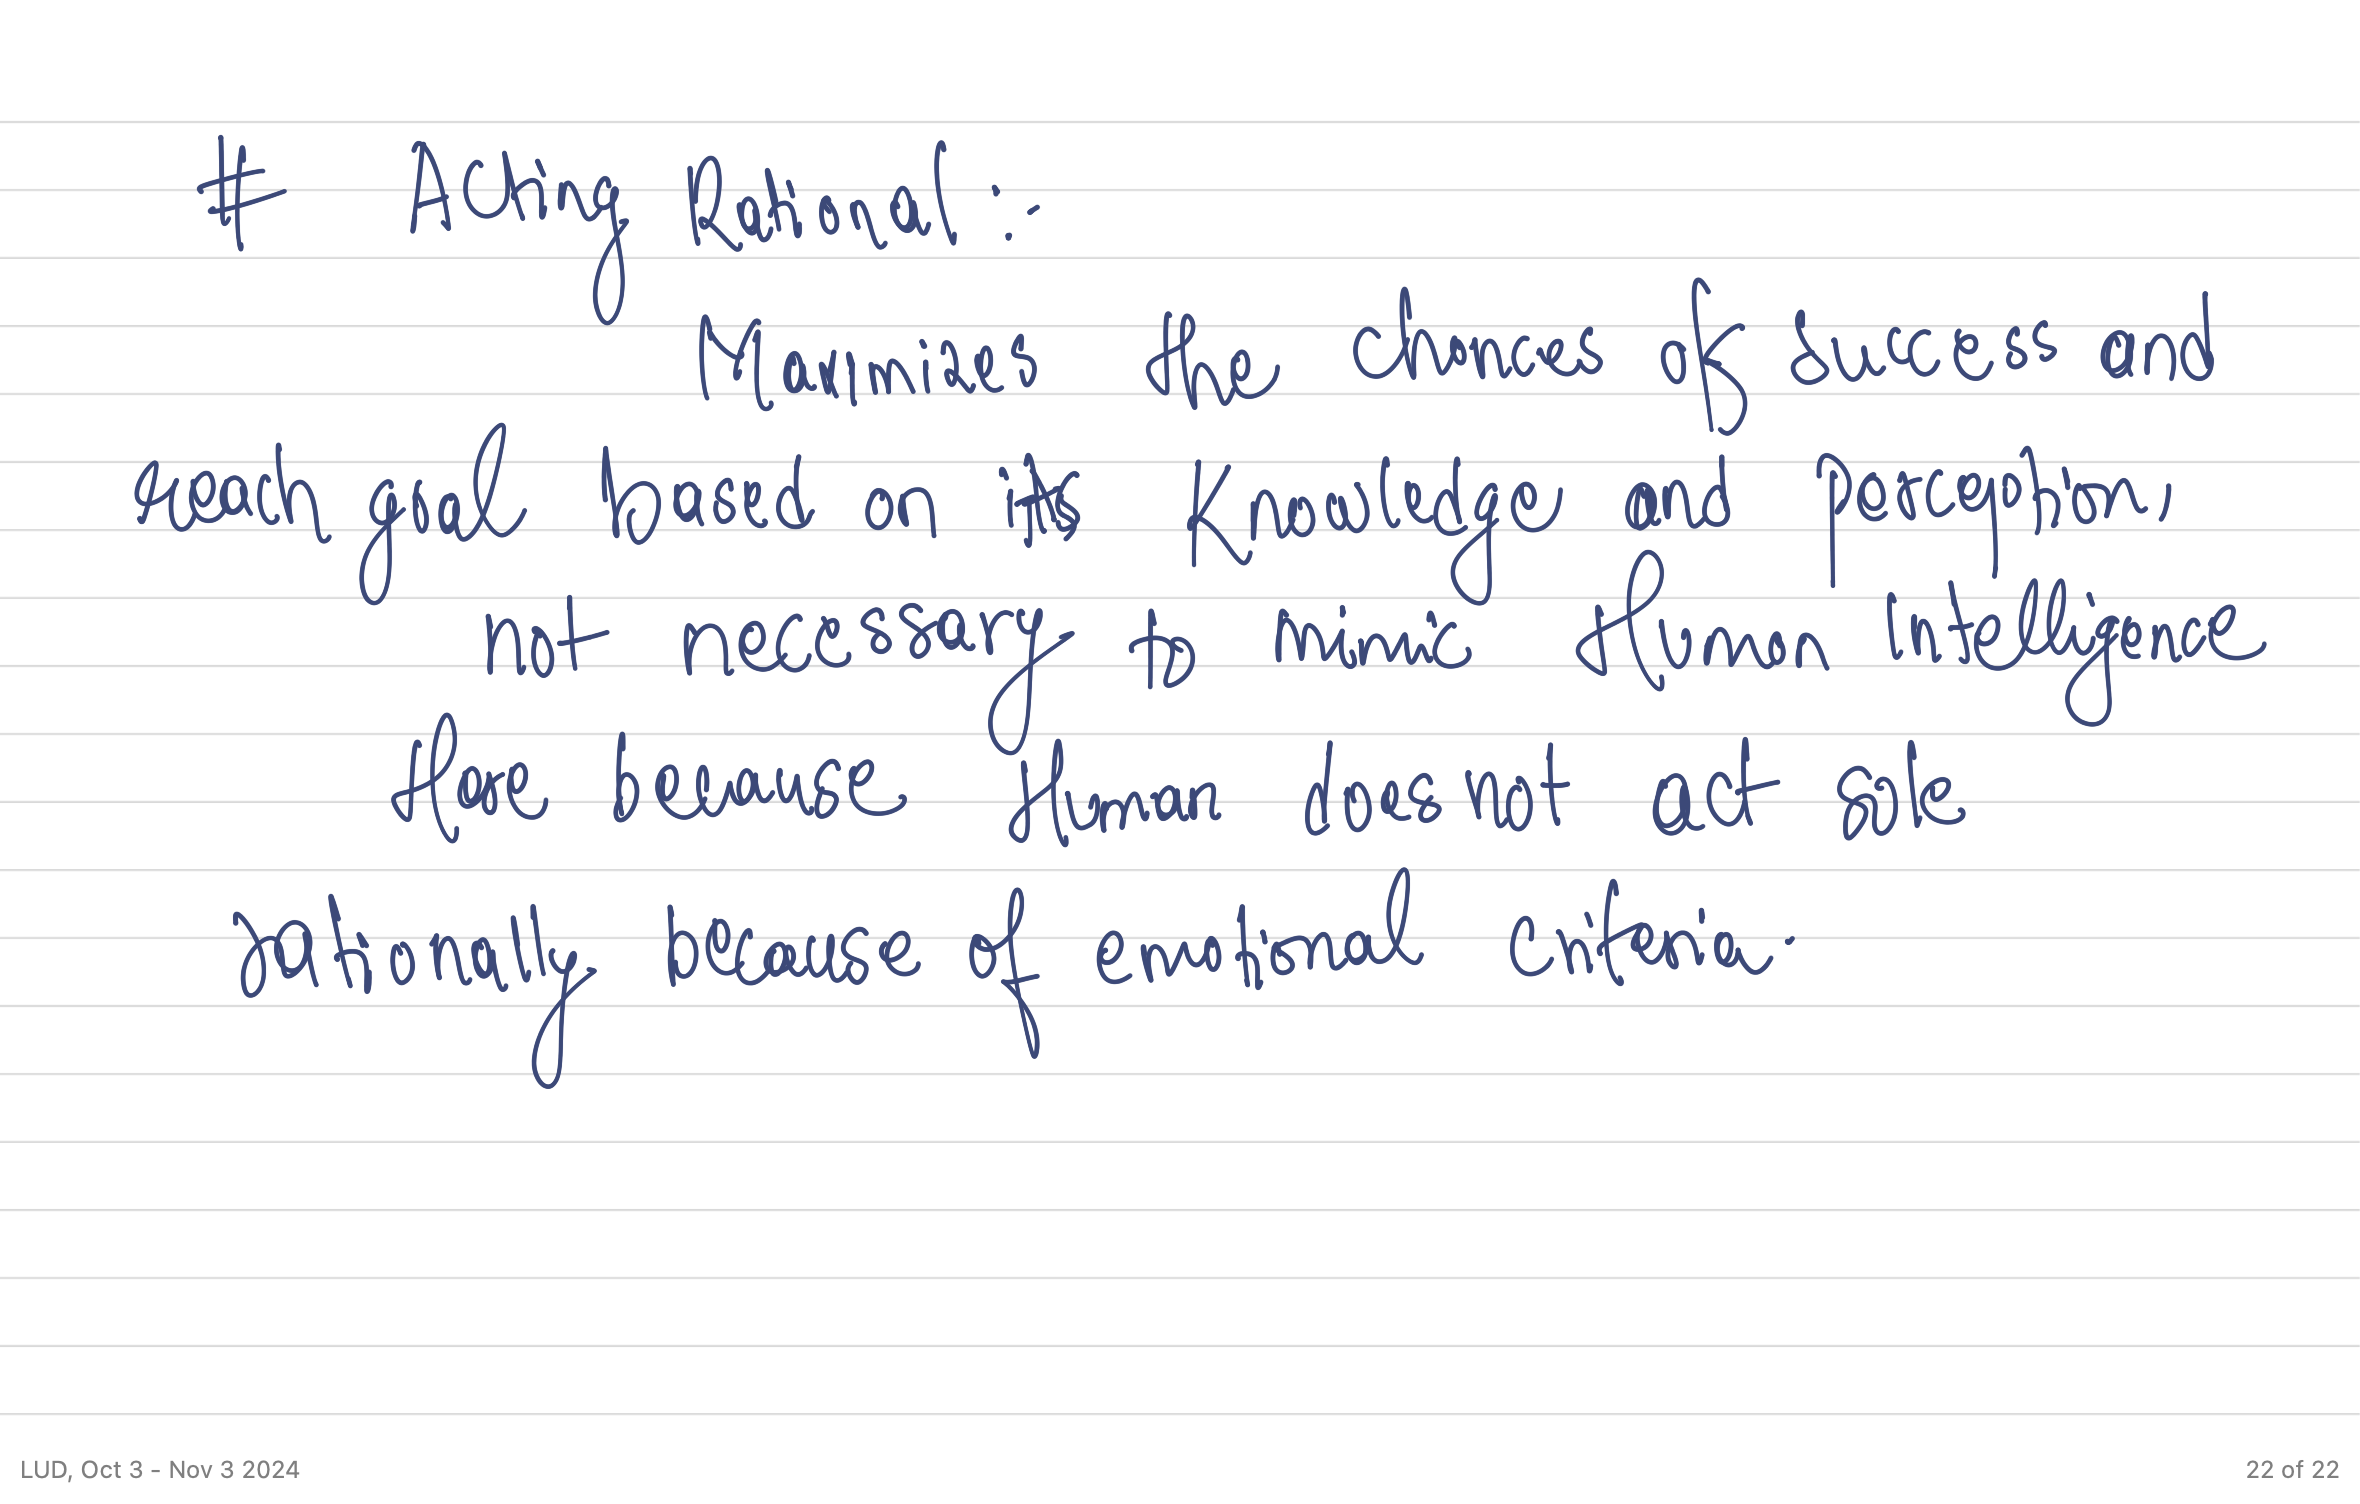 # Acting Rational :-
Maximizes the chances of success and
reach goal based on its Knowledge and perception,
not necessary to mimic Human Intelligence
Here because Human does not act sole
rationally because of emotional criteria.
LUD, Oct 3 - Nov 3 2024
22 of 22